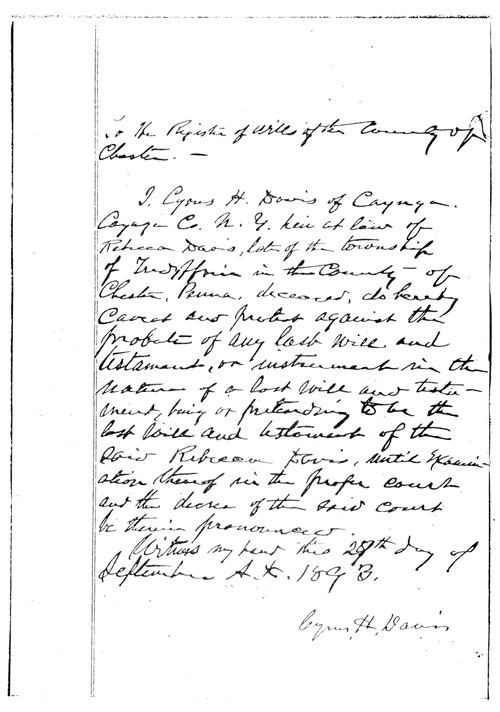 To the Register of Wills of the County of
Chester. —
I. Cyrus H. Davis of Cayuga.
Cayuga Co. N. Y. heir at law of
Rebecca Davis, late of the township
of Tredyffrin in the County of
Chester, Penna, deceased, do hereby
Caveat and protest against the
probate of any last will and
testament, or instrument in the
nature of a last will and testa-
ment, being or pretending to be the
last will and testament of the
said Rebecca Davis, until Examin-
ation thereof in the proper court
and the decree of the said court
be therein pronounced.
Witness my hand this 28th day of
September A.D. 1893.
Cyrus H. Davis